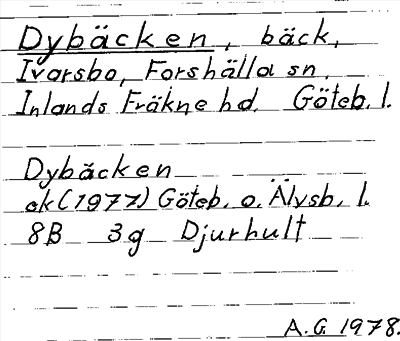 Dybäcken, bäck,
Ivarsbo, Forshälla sn.
Inlands Fräkne hd. Göteb. l.
Dybäcken
ek (1977) Göteb. o. Älvsb. l.
8B 3g Djurhult
A. G. 1978.